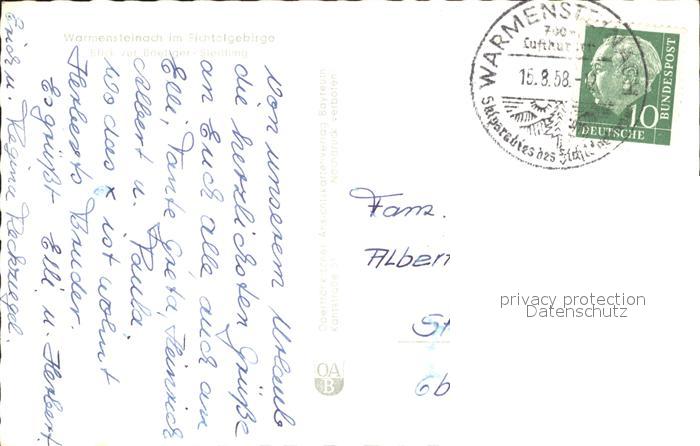 Warmensteinach im Fichtelgebirge
Blick zur Boettger-Siedlung
Von unserem Urlaub
die herzlichsten Grüße
an Euch alle, auch an
Elli, Tante Greta, Heinrich
Albert u. Paula.
Wo das x ist wohnt
Herberts Bruder.
Es grüßt Elli u. Herbert
Erich u.
Oberfränkischer Ansichtskartenverlag Bayreuth
Nachdruck verboten
OA
B
WARMENSTEINACH
Luftkurort
15.8.58.
Skiparadies des Fichtel
DEUTSCHE
BUNDESPOST
10
Fam.
Alber
St
6b
privacy protection
Datenschutz